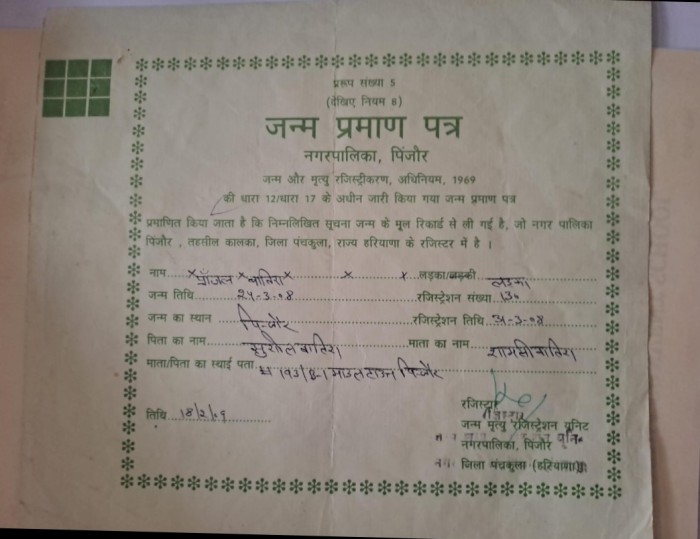 प्ररूप संख्या 5
(देखिए नियम 8)
जन्म प्रमाण पत्र
नगरपालिका, पिंजौर
जन्म और मृत्यु रजिस्ट्रीकरण, अधिनियम, 1969
की धारा 12/धारा 17 के अधीन जारी किया गया जन्म प्रमाण पत्र
प्रमाणित किया जाता है कि निम्नलिखित सूचना जन्म के मूल रिकार्ड से ली गई है, जो नगर पालिका
पिंजौर , तहसील कालका, जिला पंचकुला, राज्य हरियाणा के रजिस्टर में है ।
नाम लड़का/लड़की लड़का
जन्म तिथि रजिस्ट्रेशन संख्या
जन्म का स्थान पिन्जौर रजिस्ट्रेशन तिथि
पिता का नाम सुशील माता का नाम
माता/पिता का स्थाई पता माडल टाऊन पिन्जौर
तिथि 18/2/09
रजिस्ट्रार
जन्म मृत्यु रजिस्ट्रेशन यूनिट
नगरपालिका, पिंजौर
जिला पंचकुला (हरियाणा)